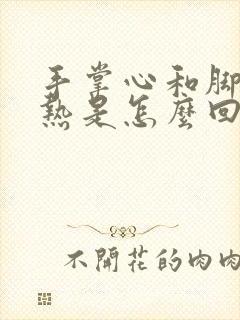 手掌心和脚
熱是怎麼回
不開花的肉肉